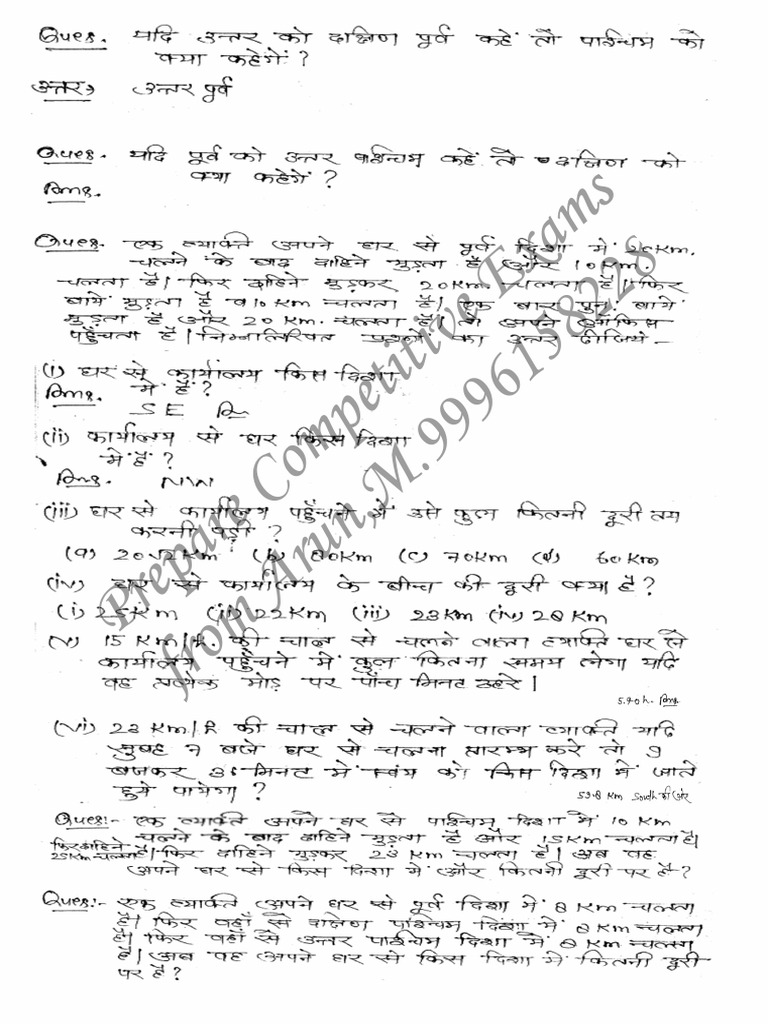 Ques. यदि उत्तर को दक्षिण पूर्व कहें तो पश्चिम को
क्या कहेगें ?
उत्तर→ उत्तर पूर्व
Ques. यदि पूर्व को उत्तर पश्चिम कहें तो दक्षिण को
क्या कहेगें ?
Ans.
Ques. एक व्यक्ति अपने घर से पूर्व दिशा में Km.
चलने के बाद दाहिने मुड़ता है और 10 Km.
चलता है। फिर दाहिने मुड़कर 20Km. चलता है। फिर
बायें मुड़ता है व 10 Km चलता है। एक बार पुनः बायें
मुड़ता है और 20 Km. चलता है। व अपने
पहुँचता है। निम्नलिखित का उत्तर दीजिये-
(i) घर से कार्यालय किस दिशा
में है ?
Ans. SE
(ii) कार्यालय से घर किस दिशा
में है ?
Ans. NW
(iii) घर से कार्यालय पहुँचने में उसे कुल कितनी दूरी तय
करनी पड़ी ?
(a) 20√2Km (b) 80Km (c) 70Km (d) 60 Km
(iv) घर से कार्यालय के बीच की दूरी क्या है ?
(i) 25Km (ii) 22Km (iii) 23Km (iv) 28 Km
(v) 15 Km/h. की चाल से चलने वाला व्यक्ति घर से
कार्यालय पहुँचने में कुल कितना समय लेगा यदि
वह प्रत्येक मोड़ पर पाँच मिनट ठहरे।
5.40h. Ans.
(vi) 23 Km/h की चाल से चलने वाला व्यक्ति यदि
सुबह 7 बजे घर से चलना प्रारम्भ करे तो 9
बजकर 36 मिनट में स्वंय को किस दिशा में जाते
हुये पायेगा ?
59.8 Km South की ओर
Ques:- एक व्यक्ति अपने घर से पश्चिम दिशा में 10 Km
चलने के बाद दाहिने मुड़ता है और 15Km चलता है।
फिर दाहिने 25Km चलता है। फिर दाहिने मुड़कर 23 Km चलता है। अब वह
अपने घर से किस दिशा में और कितनी दूरी पर है ?
Ques:- एक व्यक्ति अपने घर से पूर्व दिशा में 8 Km चलता
है। फिर वहाँ से दक्षिण पश्चिम दिशा में 8 Km चलता
है। फिर वहाँ से उत्तर पश्चिम दिशा में 8 Km चलता
है। अब वह अपने घर से किस दिशा में कितनी दूरी
पर है ?
Prepare Competitive Exams
from Arun.M.9996158228